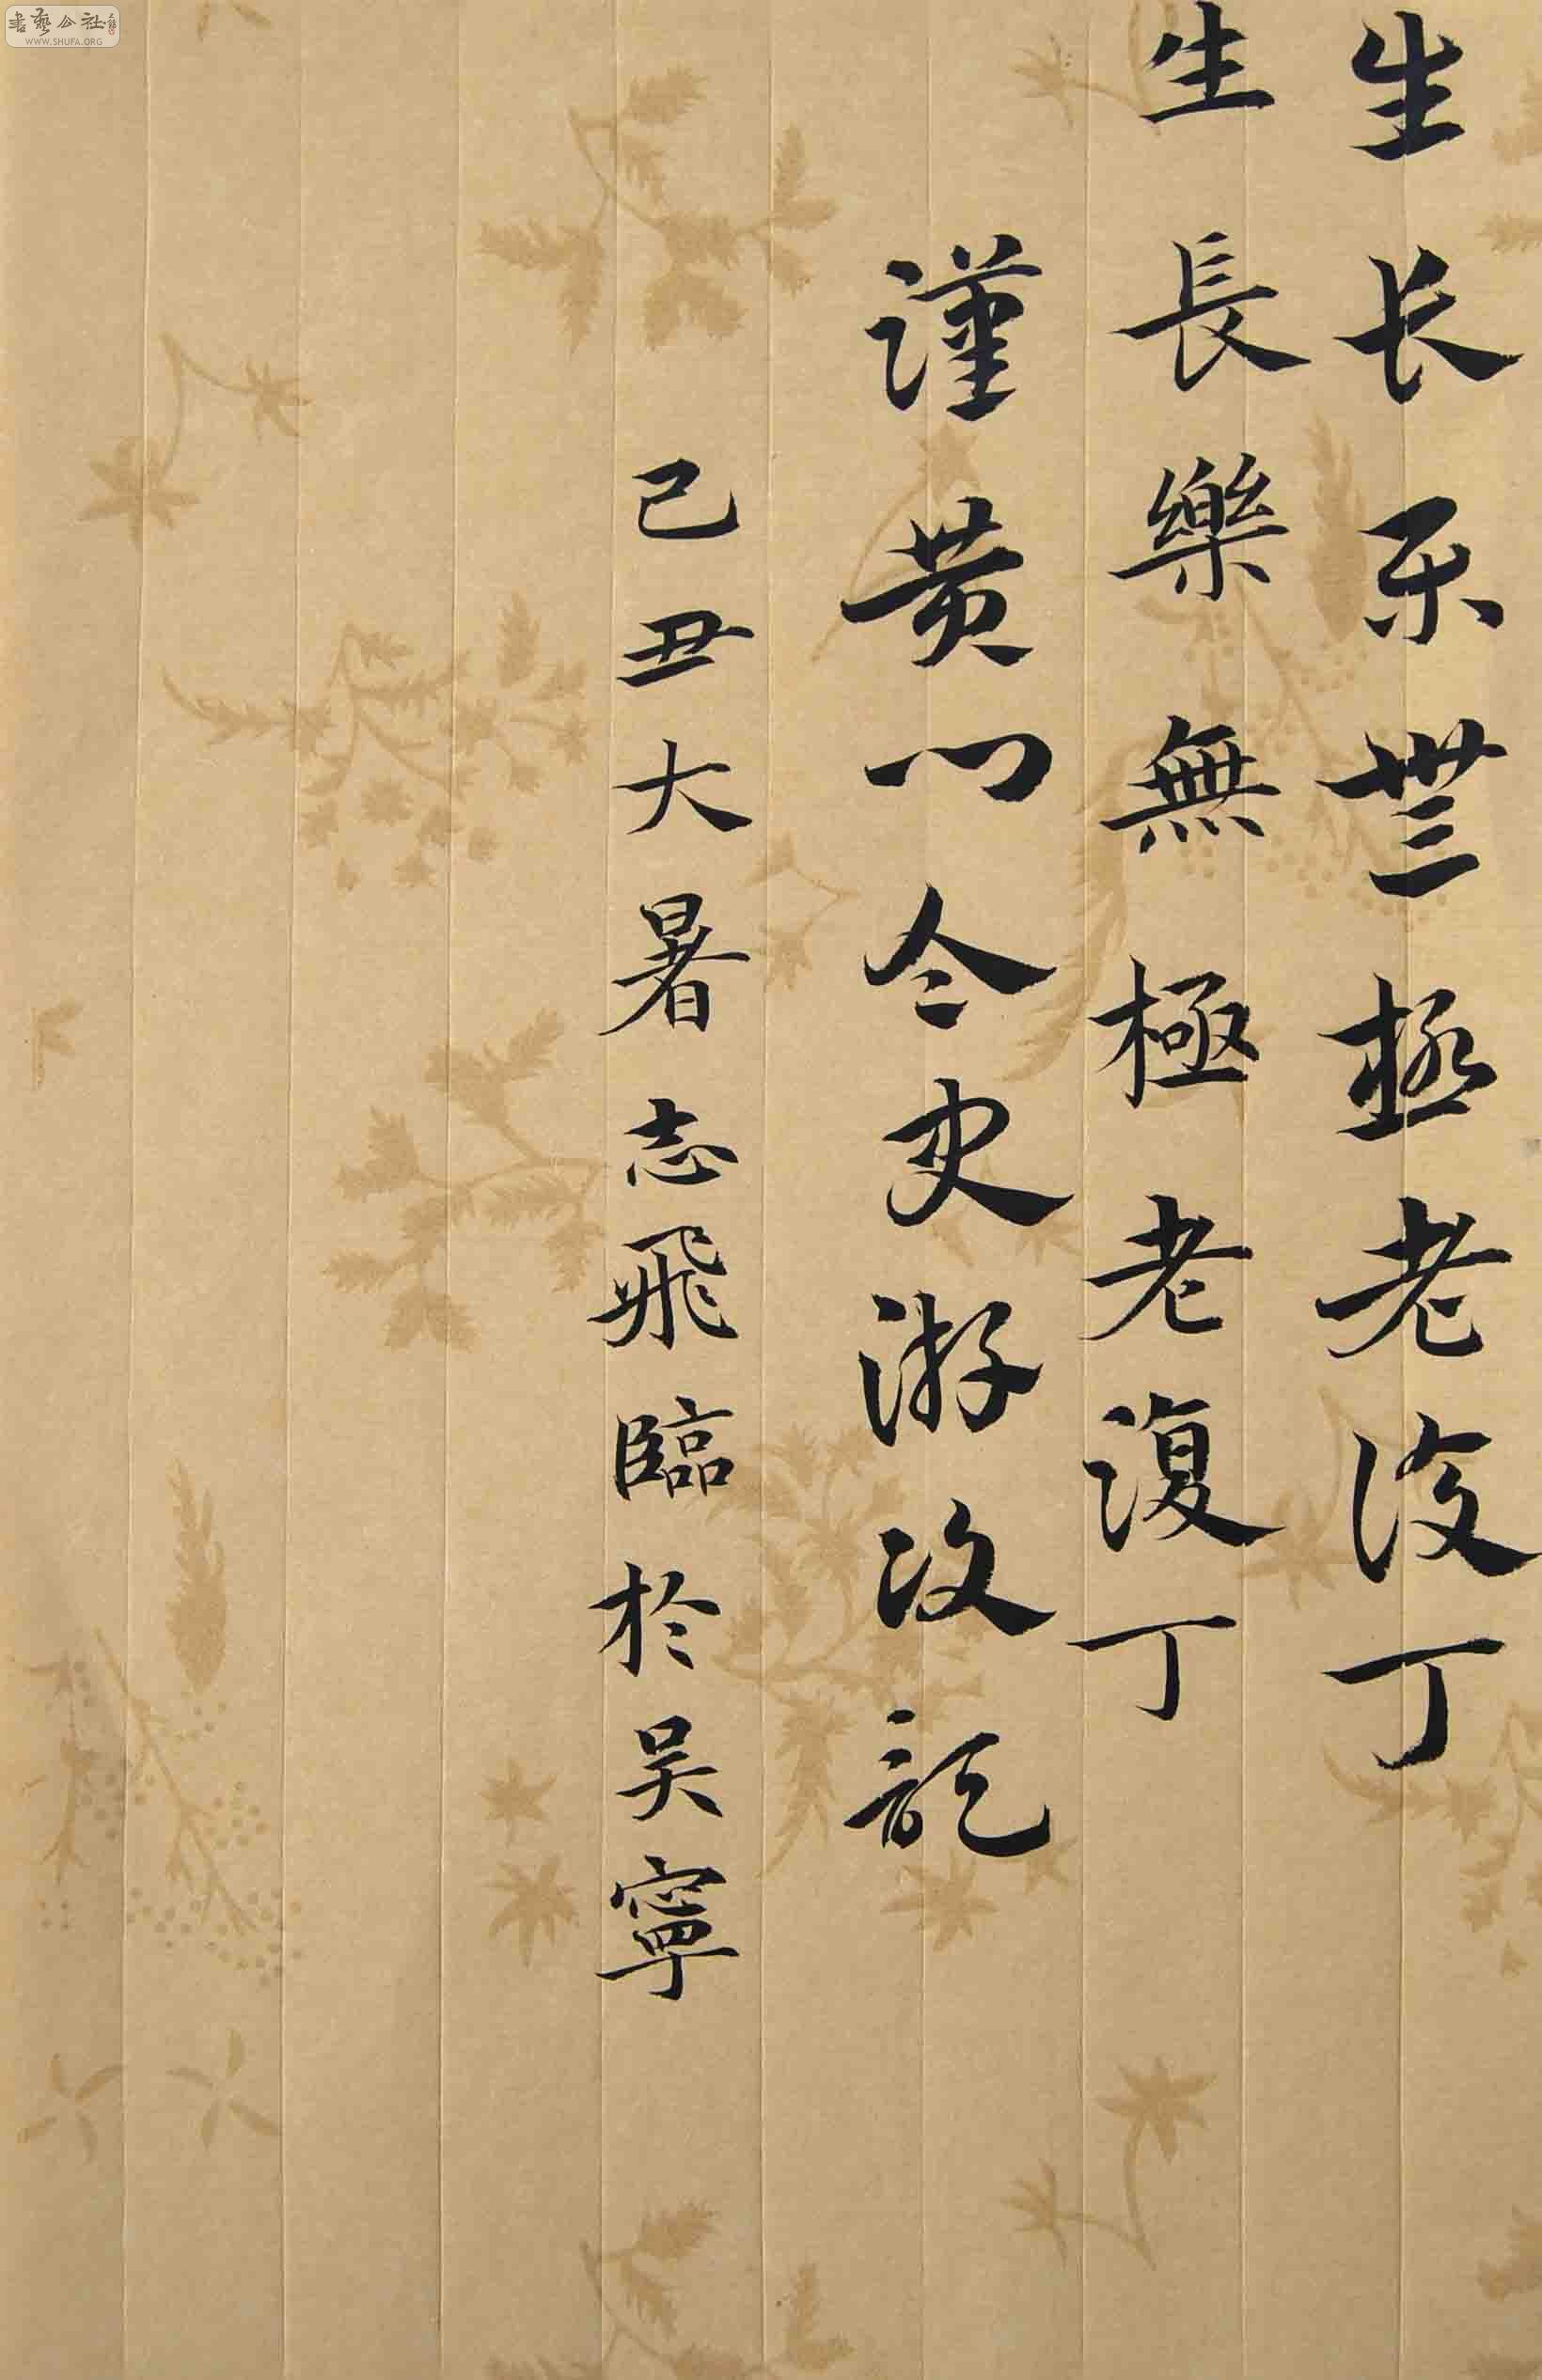 生长乐无極老復丁
生長樂無極老復丁
謹黄门令史游次記
己丑大暑志飛臨於吴寧
書藝公社
WWW.SHUFA.ORG